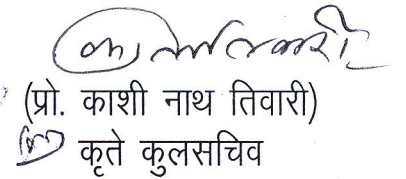 (प्रो. काशी नाथ तिवारी)
कृते कुलसचिव